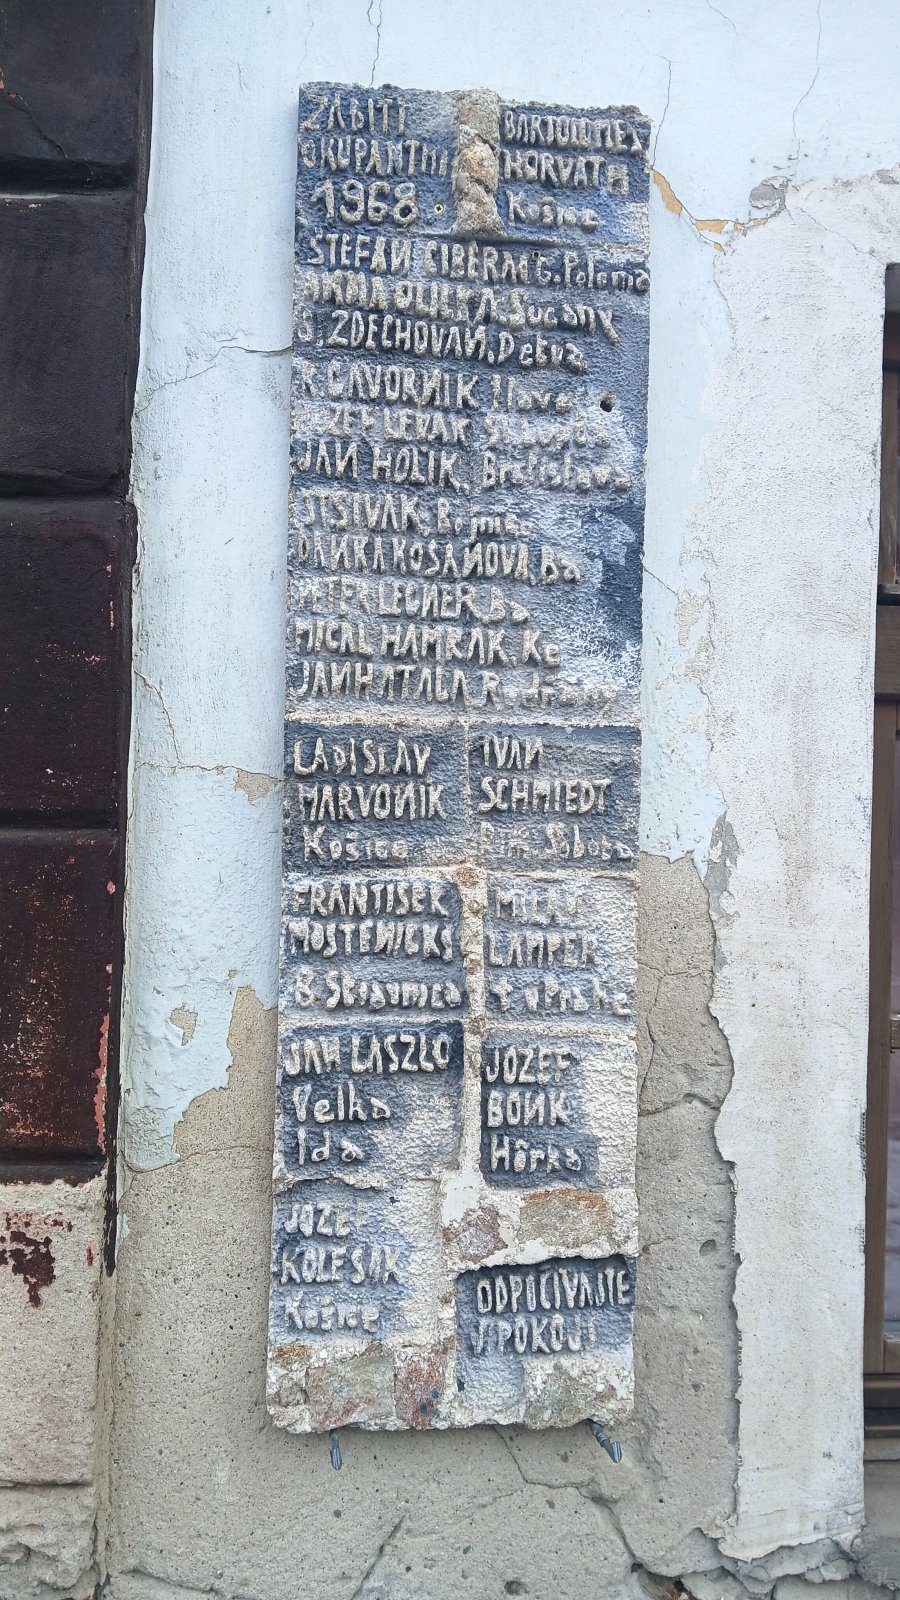 ZABITI
OKUPANTMI
1968
BARTOLOMEJ
HORVATH
Košice
STEFAN CIBERA G. Poloma
GULKA, Sucany
J. ZDECHOVAN, Detva
R. CAVORNIK Ilava
JOZEF LEVAK
JAN HOLIK, Bratislava
ST SIVAK, Bojnice
DANKA KOSANOVA, Ba
PETER LEGNER, Ba
MICAL HAMRAK, Ke
JAN HATALA, Rudňany
LADISLAV
MARVONIK
Košice
IVAN
SCHMIEDT
Rim. Sobota
FRANTISEK
MOSTENICKS
B. Stiavnica
MILAN
LAMPER
+ v Prahe
JAN LASZLO
Velka
Ida
JOZEF
BONK
Hôrka
JOZEF
KOLESAK
Košice
ODPOČIVAJTE
V POKOJI